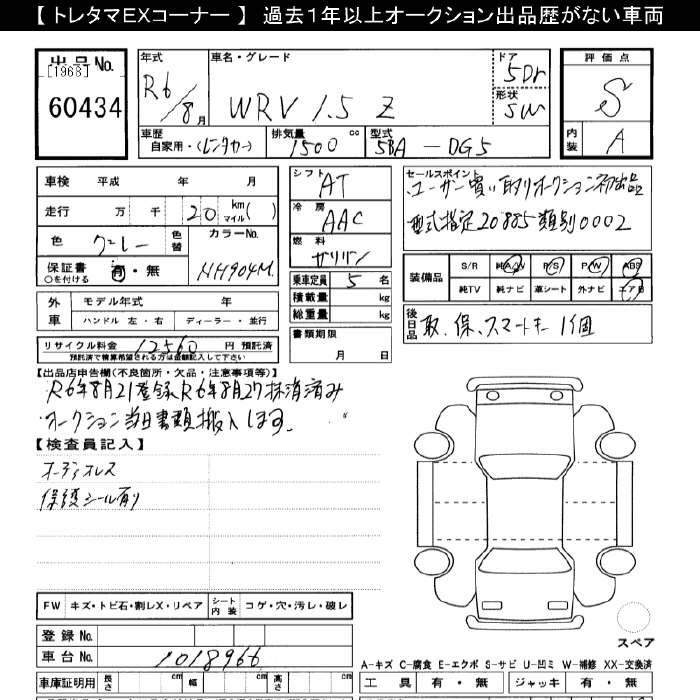 【 トレタマEXコーナー 】 過去1年以上オークション出品歴がない車両
出品No.
[1968]
60434
年式
R6/8月
車名・グレード
WRV 1.5 Z
ドア
5Dr
形状
SW
評価点
S
内装
A
車歴
自家用・(レンタカー)
排気量
1500 cc
型式
5BA-DG5
車検 平成 年 月
走行 万 千 20 km マイル( )
色 グレー 色替
カラーNo.
NH904M
保証書 有・無
○を付ける
外車 モデル年式 年
ハンドル 左・右 ディーラー・並行
リサイクル料金 12560 円 預託済
預託済で精算希望される方は金額記入して下さい
シフト
AT
冷房
AAC
燃料
ガソリン
乗車定員 5 名
積載量 kg
総重量 kg
書類期限
月 日
セールスポイント
ユーザー買い取りオークション初出品
型式指定20885類別0002
装備品
S/R 純A/W P/S P/W ABS
純TV 純ナビ 革シート 外ナビ エアB
後日品
取、保、スマートキー1個
【出品店申告欄(不良箇所・欠品・注意事項等)】
R6年8月21登録R6年8月27抹消済み
・オークション当日書類搬入します。
【検査員記入】
オーディオレス
保護シール有り
FW キズ・トビ石・割レX・リペア シート内装 コゲ・穴・汚レ・破レ
登録No.
車台No. 1018966
車庫証明用 長さ cm 幅 cm 高さ cm
スペア
A-キズ C-腐食 E-エクボ S-サビ U-凹ミ W-補修 XX-交換済
工具 有・無 ジャッキ 有・無